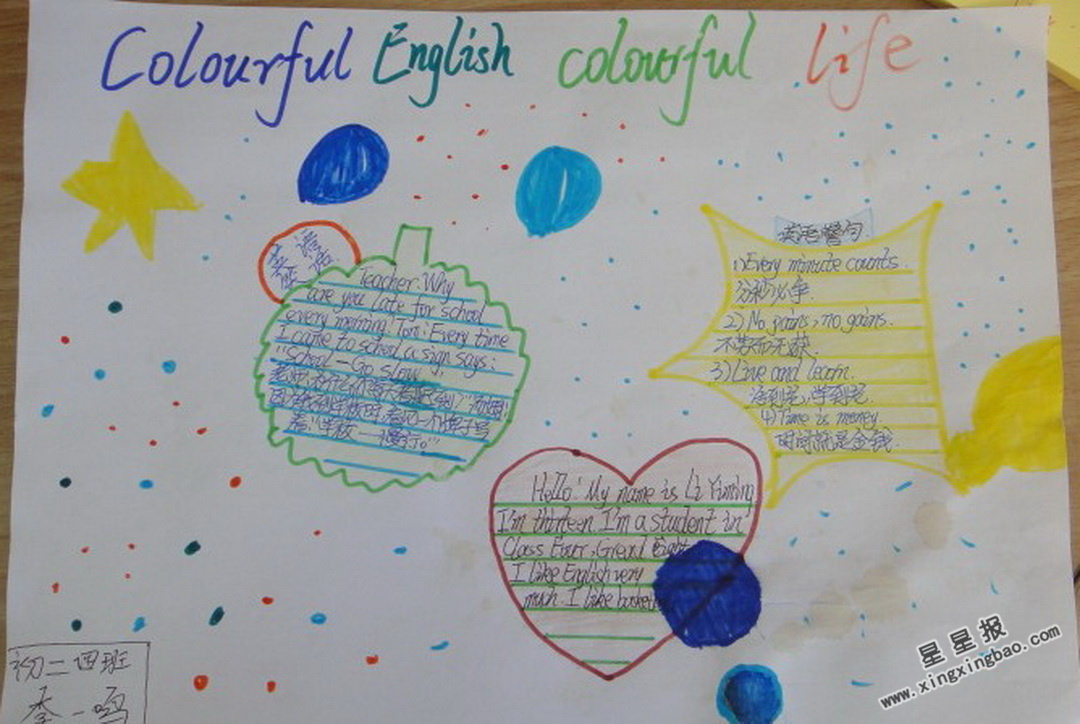 Colourful English colourful life
Teacher: Why
are you late for school
every morning. Tom: Every time
I came to school, a sign says:
"School — Go slow
英语警句
1) Every minute counts.
分秒必争.
2) No pains, no gains.
不劳而无获.
3) Live and learn.
活到老,学到老
4) Time is money
时间就是金钱.
Hello! My name is Li Yiming
I'm thirteen. I'm a student in
Class Four, Gread Eight
I like English very
much. I like
初二四班
李一鸣
星星报
www.xingxingbao.com